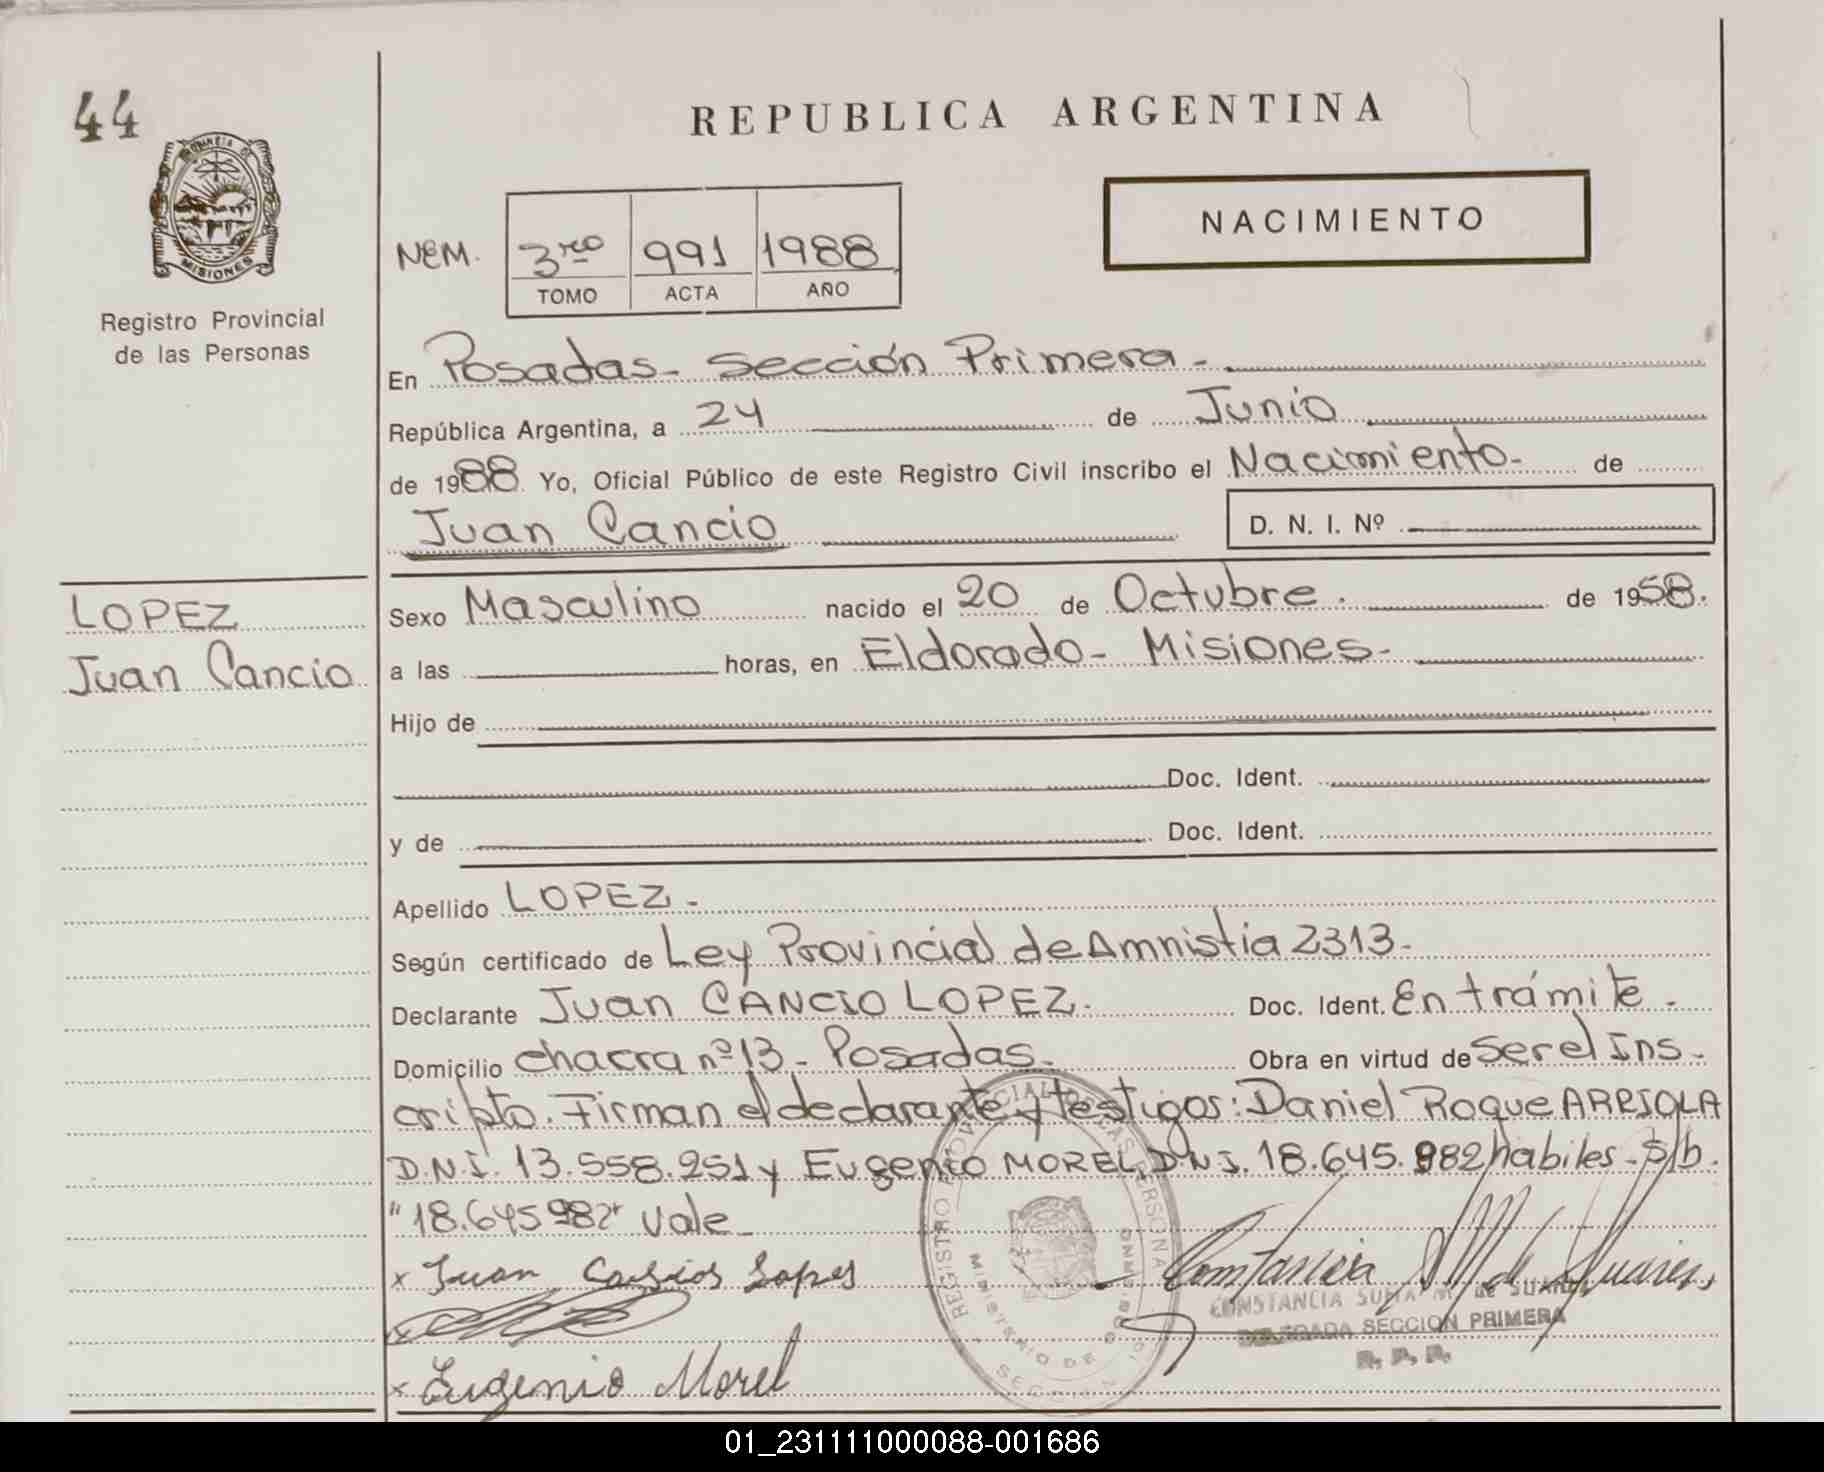 44
REPUBLICA ARGENTINA
PROVINCIA DE
MISIONES
Registro Provincial
de las Personas
NEM. 3ro 991 1988
TOMO ACTA AÑO
NACIMIENTO
En Posadas- Sección Primera-
República Argentina, a 24 de Junio
de 1988 Yo, Oficial Público de este Registro Civil inscribo el Nacimiento- de
Juan Cancio D. N. I. Nº
LOPEZ
Juan Cancio
Sexo Masculino nacido el 20 de Octubre. de 1958.
a las horas, en Eldorado- Misiones-
Hijo de
Doc. Ident.
y de Doc. Ident.
Apellido LOPEZ-
Según certificado de Ley Provincial de Amnistia 2313-
Declarante Juan CANCIO LOPEZ- Doc. Ident. En trámite-
Domicilio chacra nº 13- Posadas- Obra en virtud de ser el Ins-
cripto. Firman el declarante y testigos: Daniel Roque ARRIOLA
D.N.I. 13.558.251 y Eugenio MOREL, D.N.I. 18.645.982 habiles- S/b.
"18.645982" Vale-
x Juan Lopes
x
x Eugenio Morel
Constancia M de Suarez
CONSTANCIA SUMA M. de SUAREZ
DELEGADA SECCION PRIMERA
R. P. P.
REGISTRO PROVINCIAL DE LAS PERSONAS
MINISTERIO DE GOBIERNO
SECCION
01_231111000088-001686